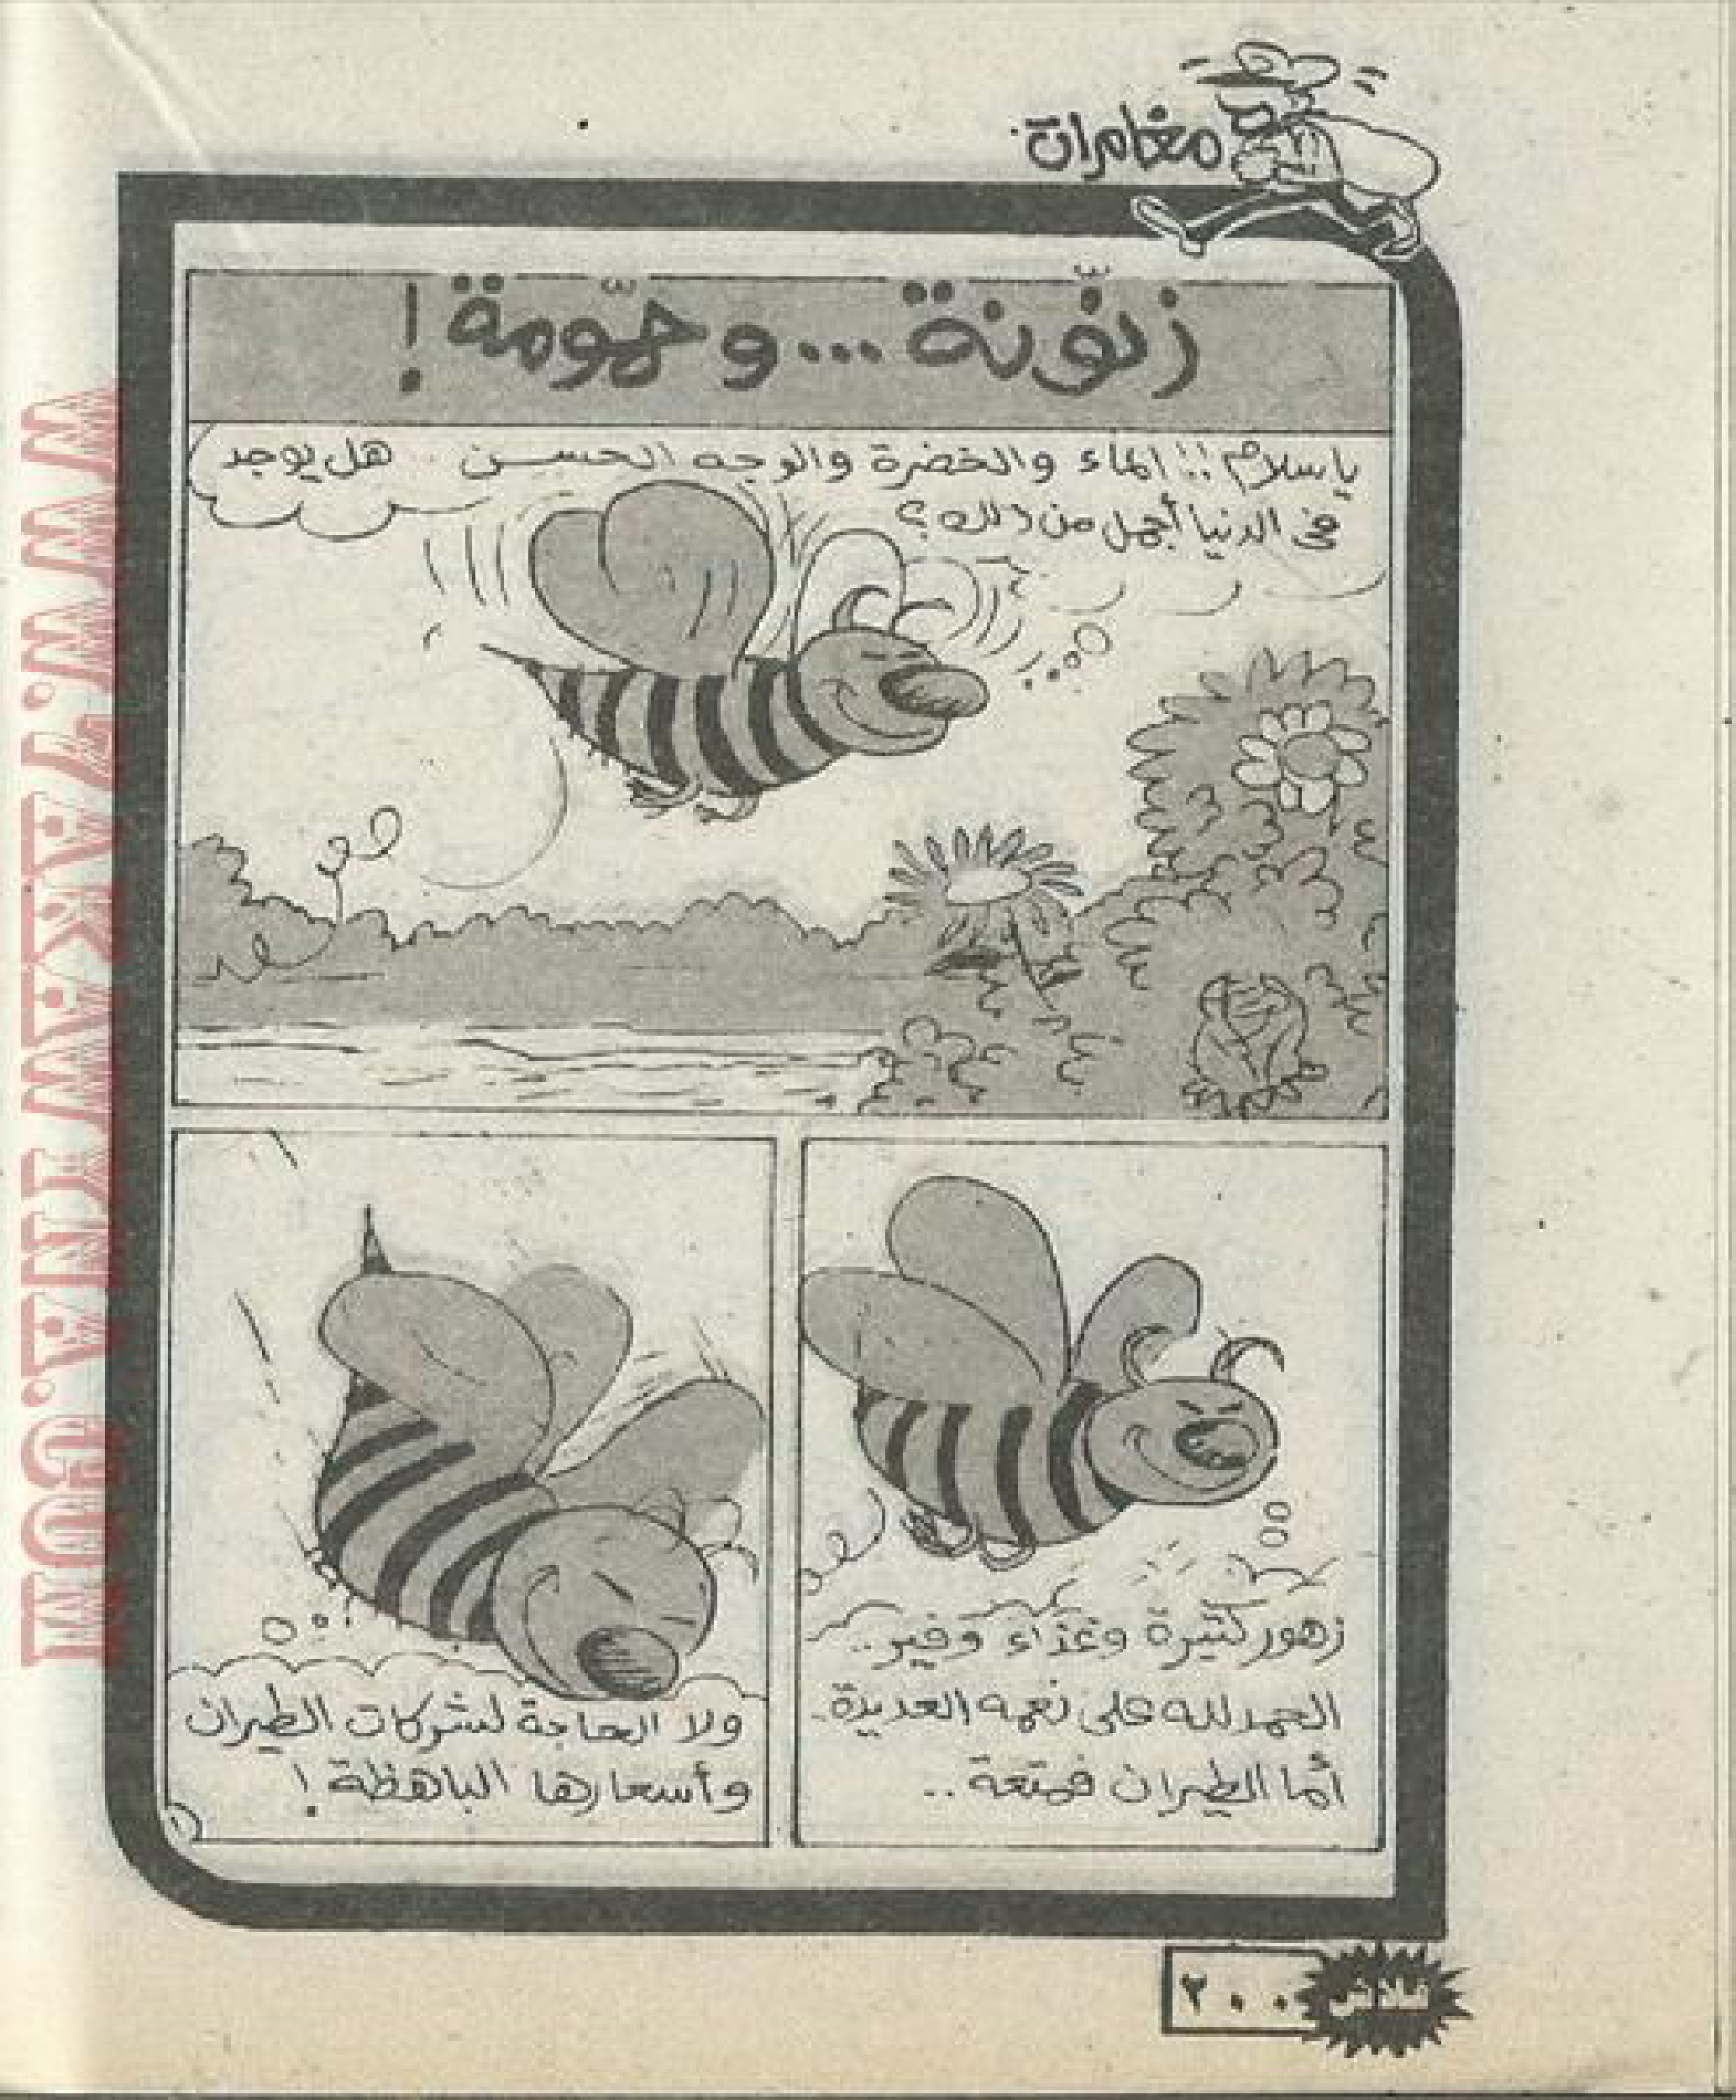 مغامرات
زنّونة... وحمّومة!
يا سلام!! الماء والخضرة والوجه الحسن .. هل يوجد
فى الدنيا أجمل من ذلك؟
زهور كثيرة وغذاء وفير..
الحمد لله على نعمه العديدة.
أما الطيران فمتعة..
ولا الحاجة لشركات الطيران
وأسعارها الباهظة!
٢٠٠
فلاش
WWW.7AKAWINA.COM